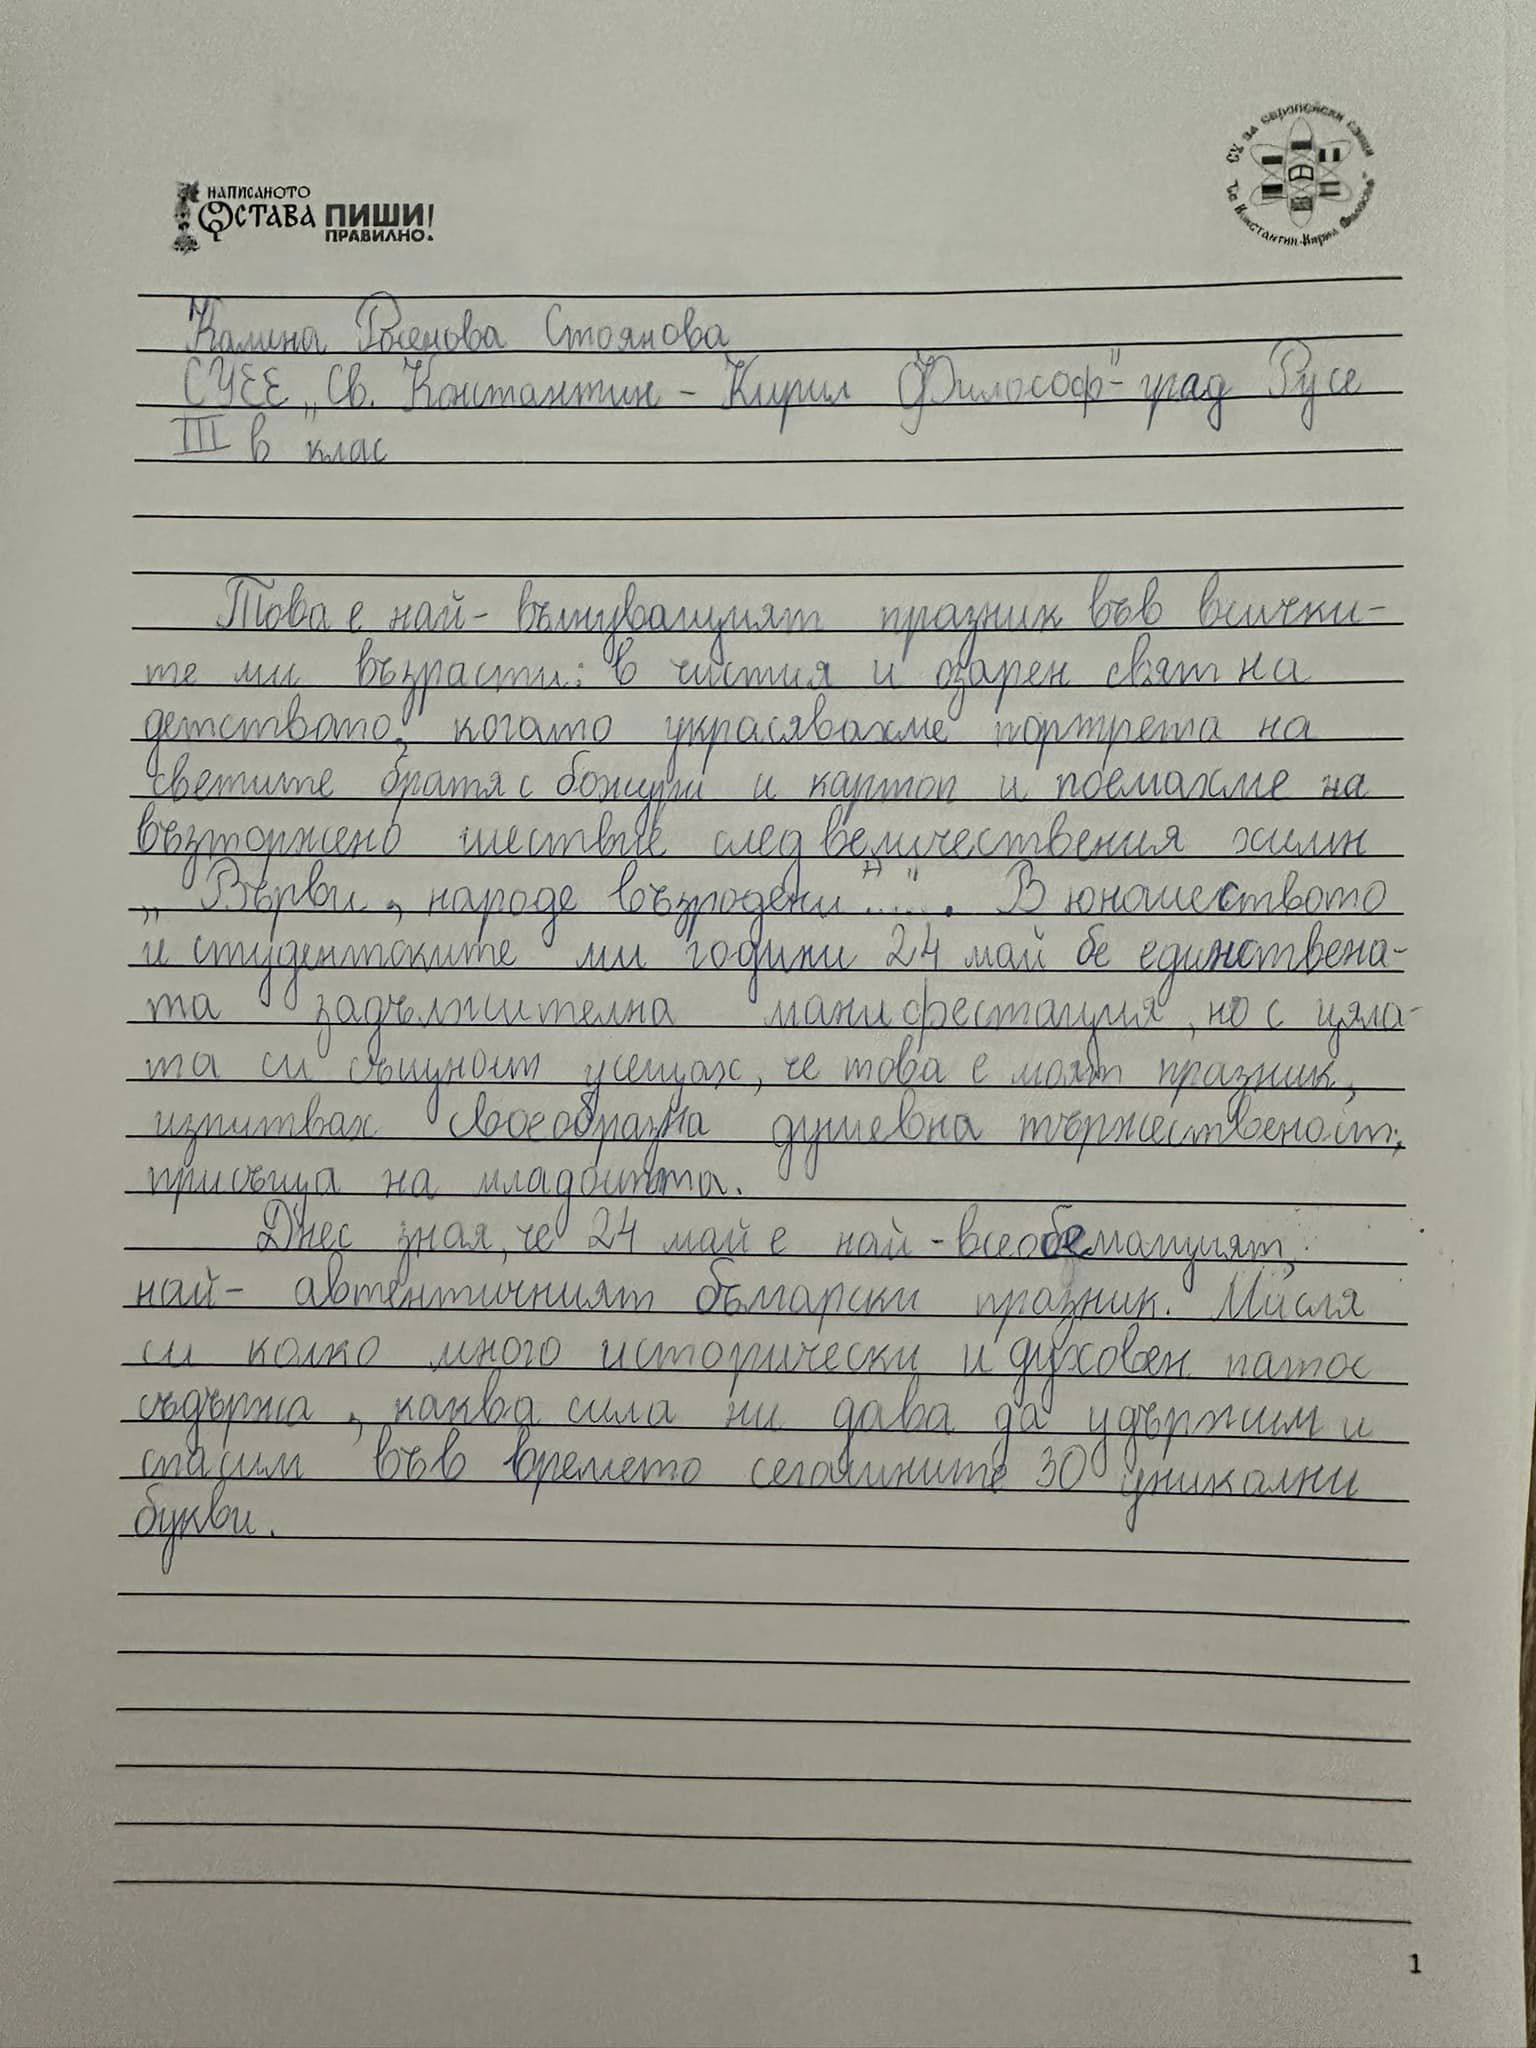 НАПИСАНОТО
ОСТАВА ПИШИ!
ПРАВИЛНО.
СУ за европейски езици
"Св. Константин-Кирил Философ"
Калина Росенова Стоянова
СУЕЕ „Св. Константин – Кирил Философ“- град Русе
III в клас
Това е най- вълнуващият празник във всички-
те ми възрасти: в чистия и озарен свят на
детството, когато украсявахме портрета на
светите братя с божури и картоп и поемахме на
възторжено шествие след величествения химн
„Върви, народе възродени.....“. В юношеството
и студентските ми години 24 май бе единствена-
та задължителна манифестация, но с цяла-
та си същност усещах, че това е моят празник,
изпитвах своеобразна душевна тържественост,
присъща на младостта.
Днес зная, че 24 май е най-всеобемащият,
най- автентичният български празник. Мисля
си колко много исторически и духовен патос
съдържа, каква сила ни дава да удържим и
спасим във времето сегашните 30 уникални
букви.
1